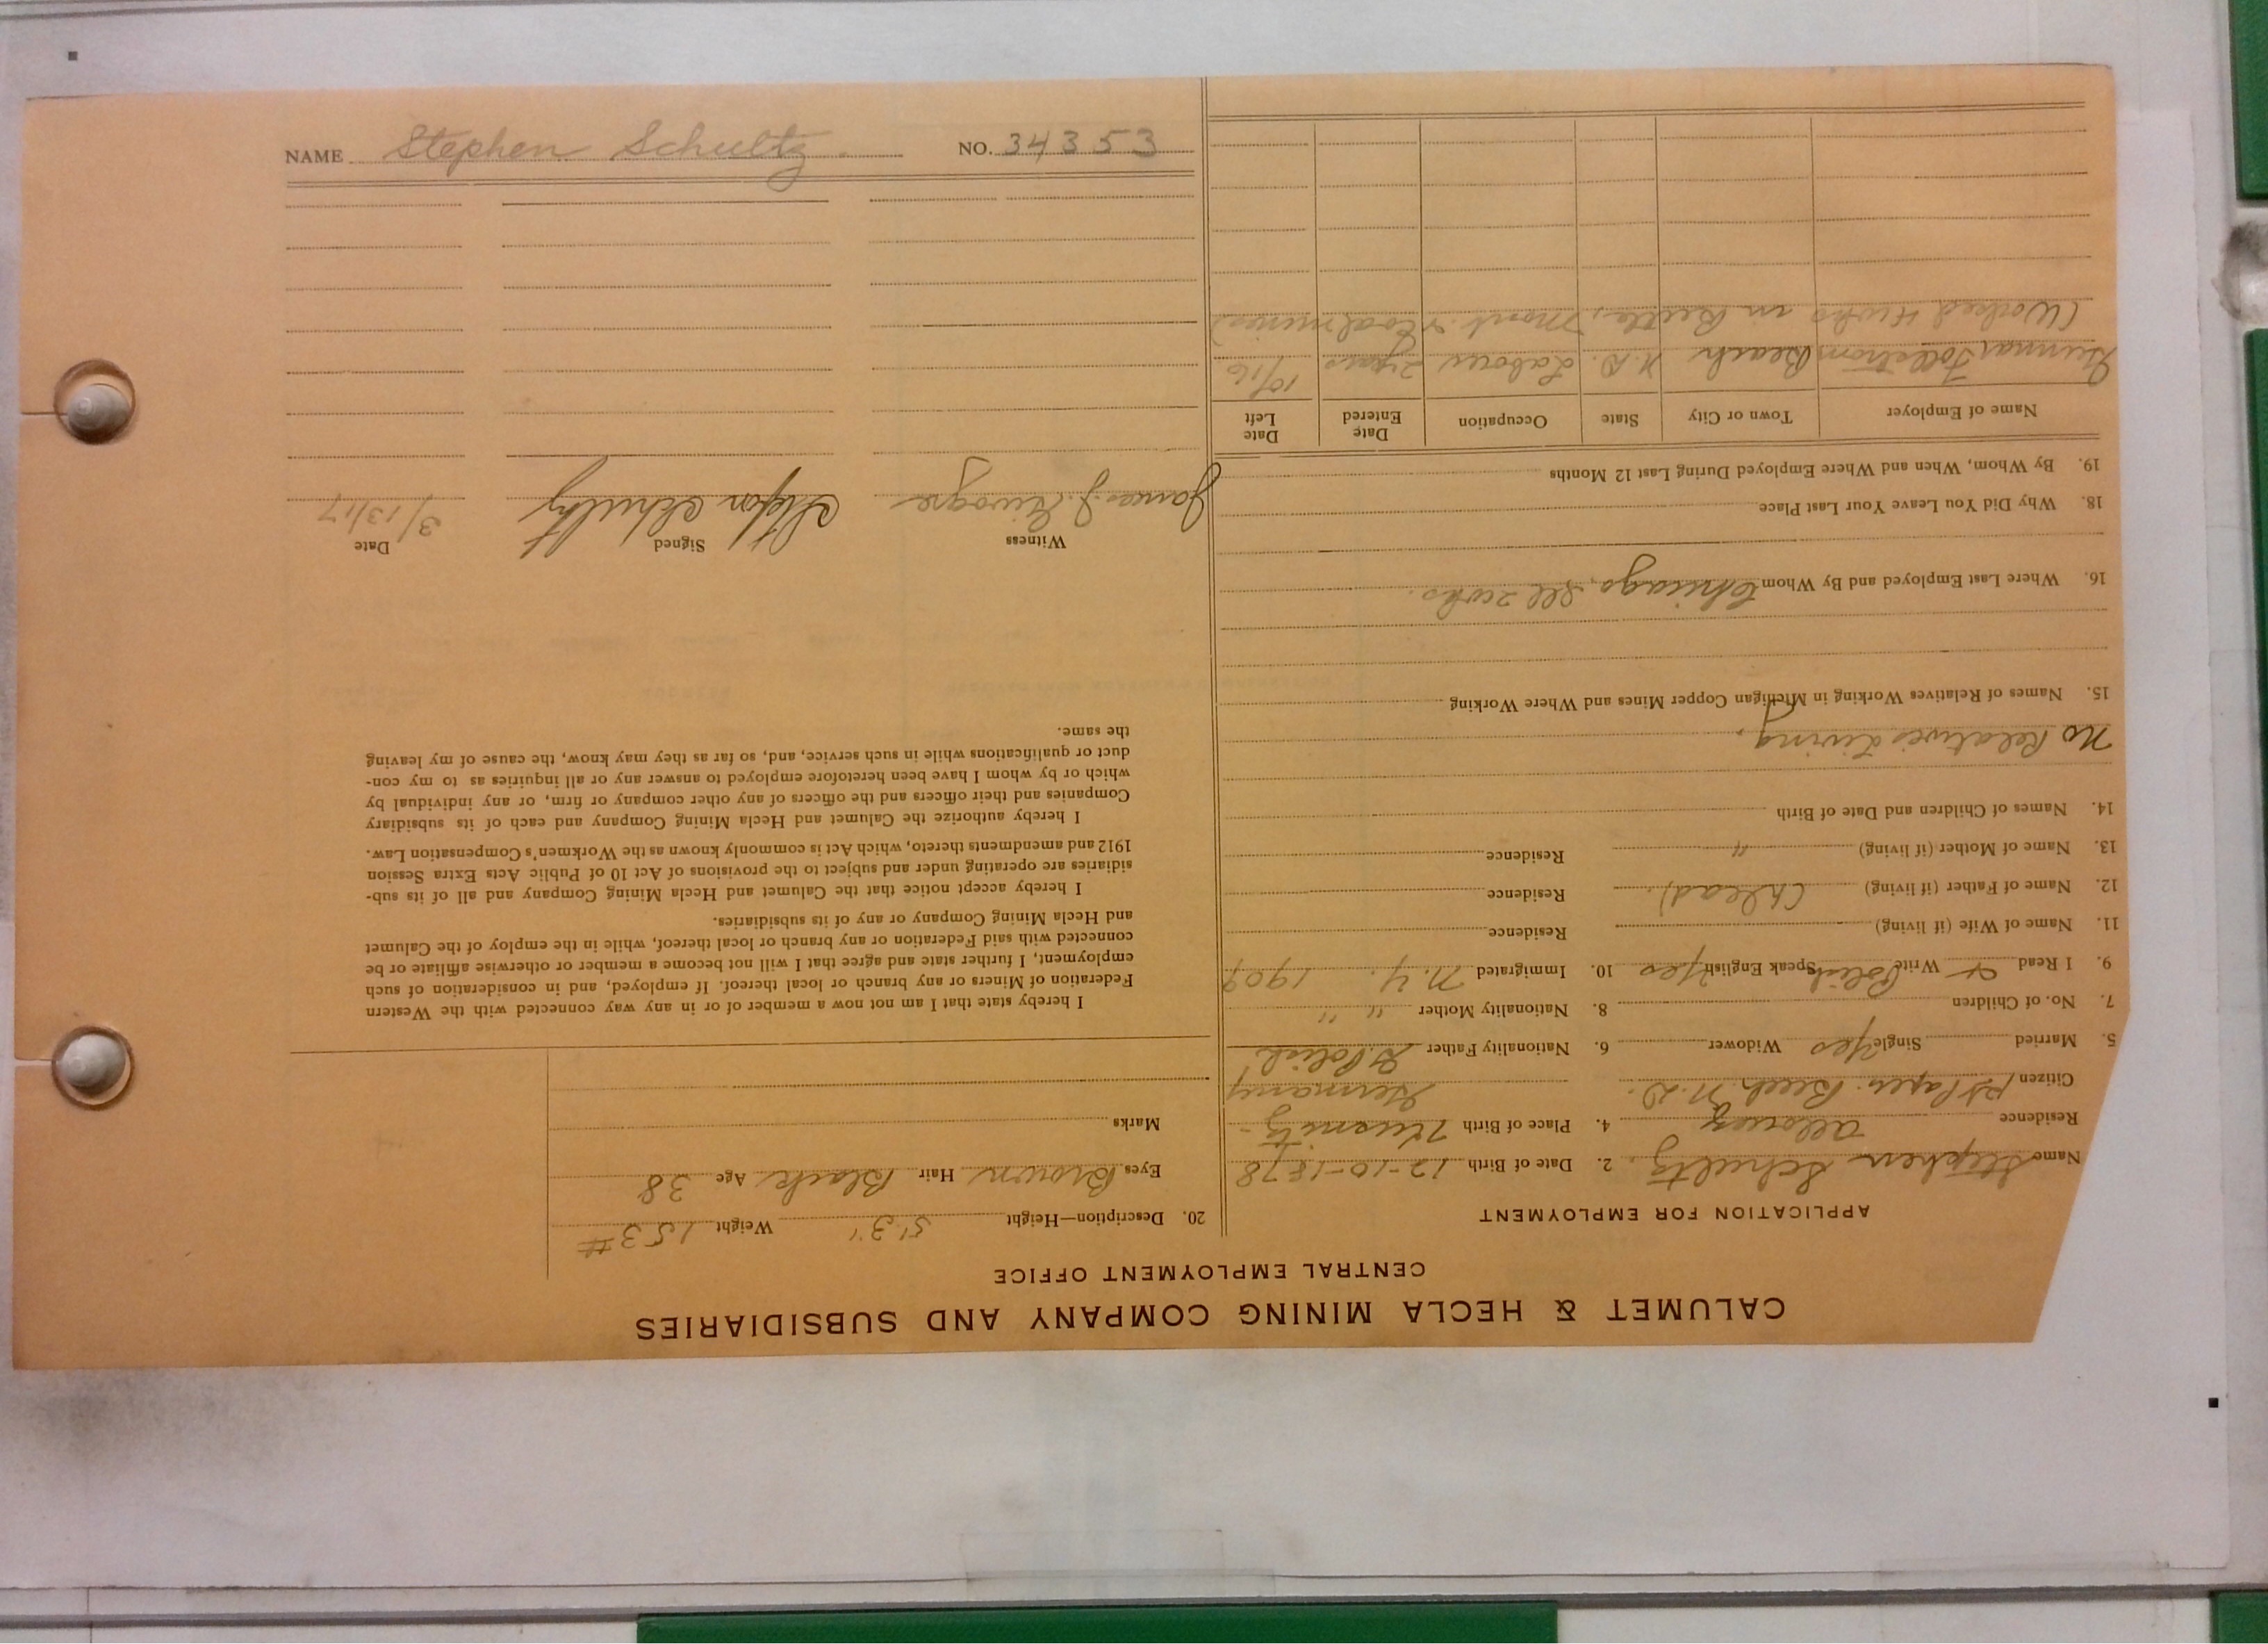 CALUMET & HECLA MINING COMPANY AND SUBSIDIARIES
CENTRAL EMPLOYMENT OFFICE
APPLICATION FOR EMPLOYMENT
Name Stephen Schultz. 2. Date of Birth 12-10-1878
Residence Allouez 4. Place of Birth
Citizen 1st Paper. Beech N.D. Germany
5. Married Single Yes Widower 6. Nationality Father G. Polish
7. No. of Children 8. Nationality Mother " "
9. I Read + Write Polish Speak English Yes 10. Immigrated N.Y. 1909
11. Name of Wife (if living) Residence
12. Name of Father (if living) (Dead). Residence
13. Name of Mother (if living) " Residence
14. Names of Children and Date of Birth
No Relatives Living.
15. Names of Relatives Working in Michigan Copper Mines and Where Working
16. Where Last Employed and By Whom Chicago, Ill 2 wks.
18. Why Did You Leave Your Last Place
19. By Whom, When and Where Employed During Last 12 Months
Name of Employer Town or City State Occupation Date Entered Date Left
Gunnar Beach N.D. Laborer 2 years 10/16
(Worked 4 wks in Butte, Mont. + Coal mines)
20. Description—Height 5' 3" Weight 153 #
Eyes Brown Hair Black Age 38
Marks
I hereby state that I am not now a member of or in any way connected with the Western
Federation of Miners or any branch or local thereof. If employed, and in consideration of such
employment, I further state and agree that I will not become a member or otherwise affiliate or be
connected with said Federation or any branch or local thereof, while in the employ of the Calumet
and Hecla Mining Company or any of its subsidiaries.
I hereby accept notice that the Calumet and Hecla Mining Company and all of its sub-
sidiaries are operating under and subject to the provisions of Act 10 of Public Acts Extra Session
1912 and amendments thereto, which Act is commonly known as the Workmen's Compensation Law.
I hereby authorize the Calumet and Hecla Mining Company and each of its subsidiary
Companies and their officers and the officers of any other company or firm, or any individual by
which or by whom I have been heretofore employed to answer any or all inquiries as to my con-
duct or qualifications while in such service, and, so far as they may know, the cause of my leaving
the same.
Witness Signed Date
James J. Stefon Schultz 3/13/17
NAME Stephen Schultz. NO. 34353